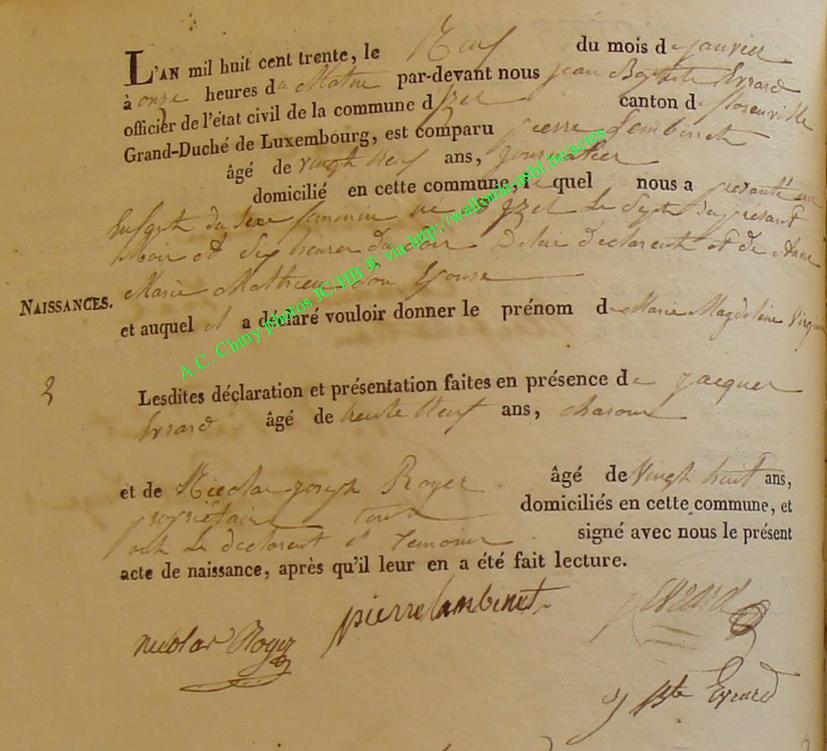 L'AN mil huit cent trente, le Neuf du mois de janvier
à onze heures du Matin par-devant nous jean Baptiste Evrard
officier de l'état civil de la commune d'Izel canton de florenville
Grand-Duché de Luxembourg, est comparu pierre Lambinet
âgé de vingt neuf ans, journalier
domicilié en cette commune, lequel nous a presenté un
Enfant du Sexe feminin né à Izel Le Sept du present
Mois et heures du soir De lui declarent et de Anne
Marie Mathieu son Epouse
NAISSANCES.
et auquel il a déclaré vouloir donner le prénom de Marie Magdeleine Virginie
3
Lesdites déclaration et présentation faites en présence de jacques
Evrard âgé de trente Neuf ans, charon
et de Nicolas joseph Royer âgé de Vingt huit ans,
proprietaire tous domiciliés en cette commune, et
ont Le declarent et Temoins signé avec nous le présent
acte de naissance, après qu'il leur en a été fait lecture.
nicolas Royer pierre lambinet j evrard
j Bte Evrard
A.C. Chiny photos JC/HB ® via http://wallonia.asbl.be/actes